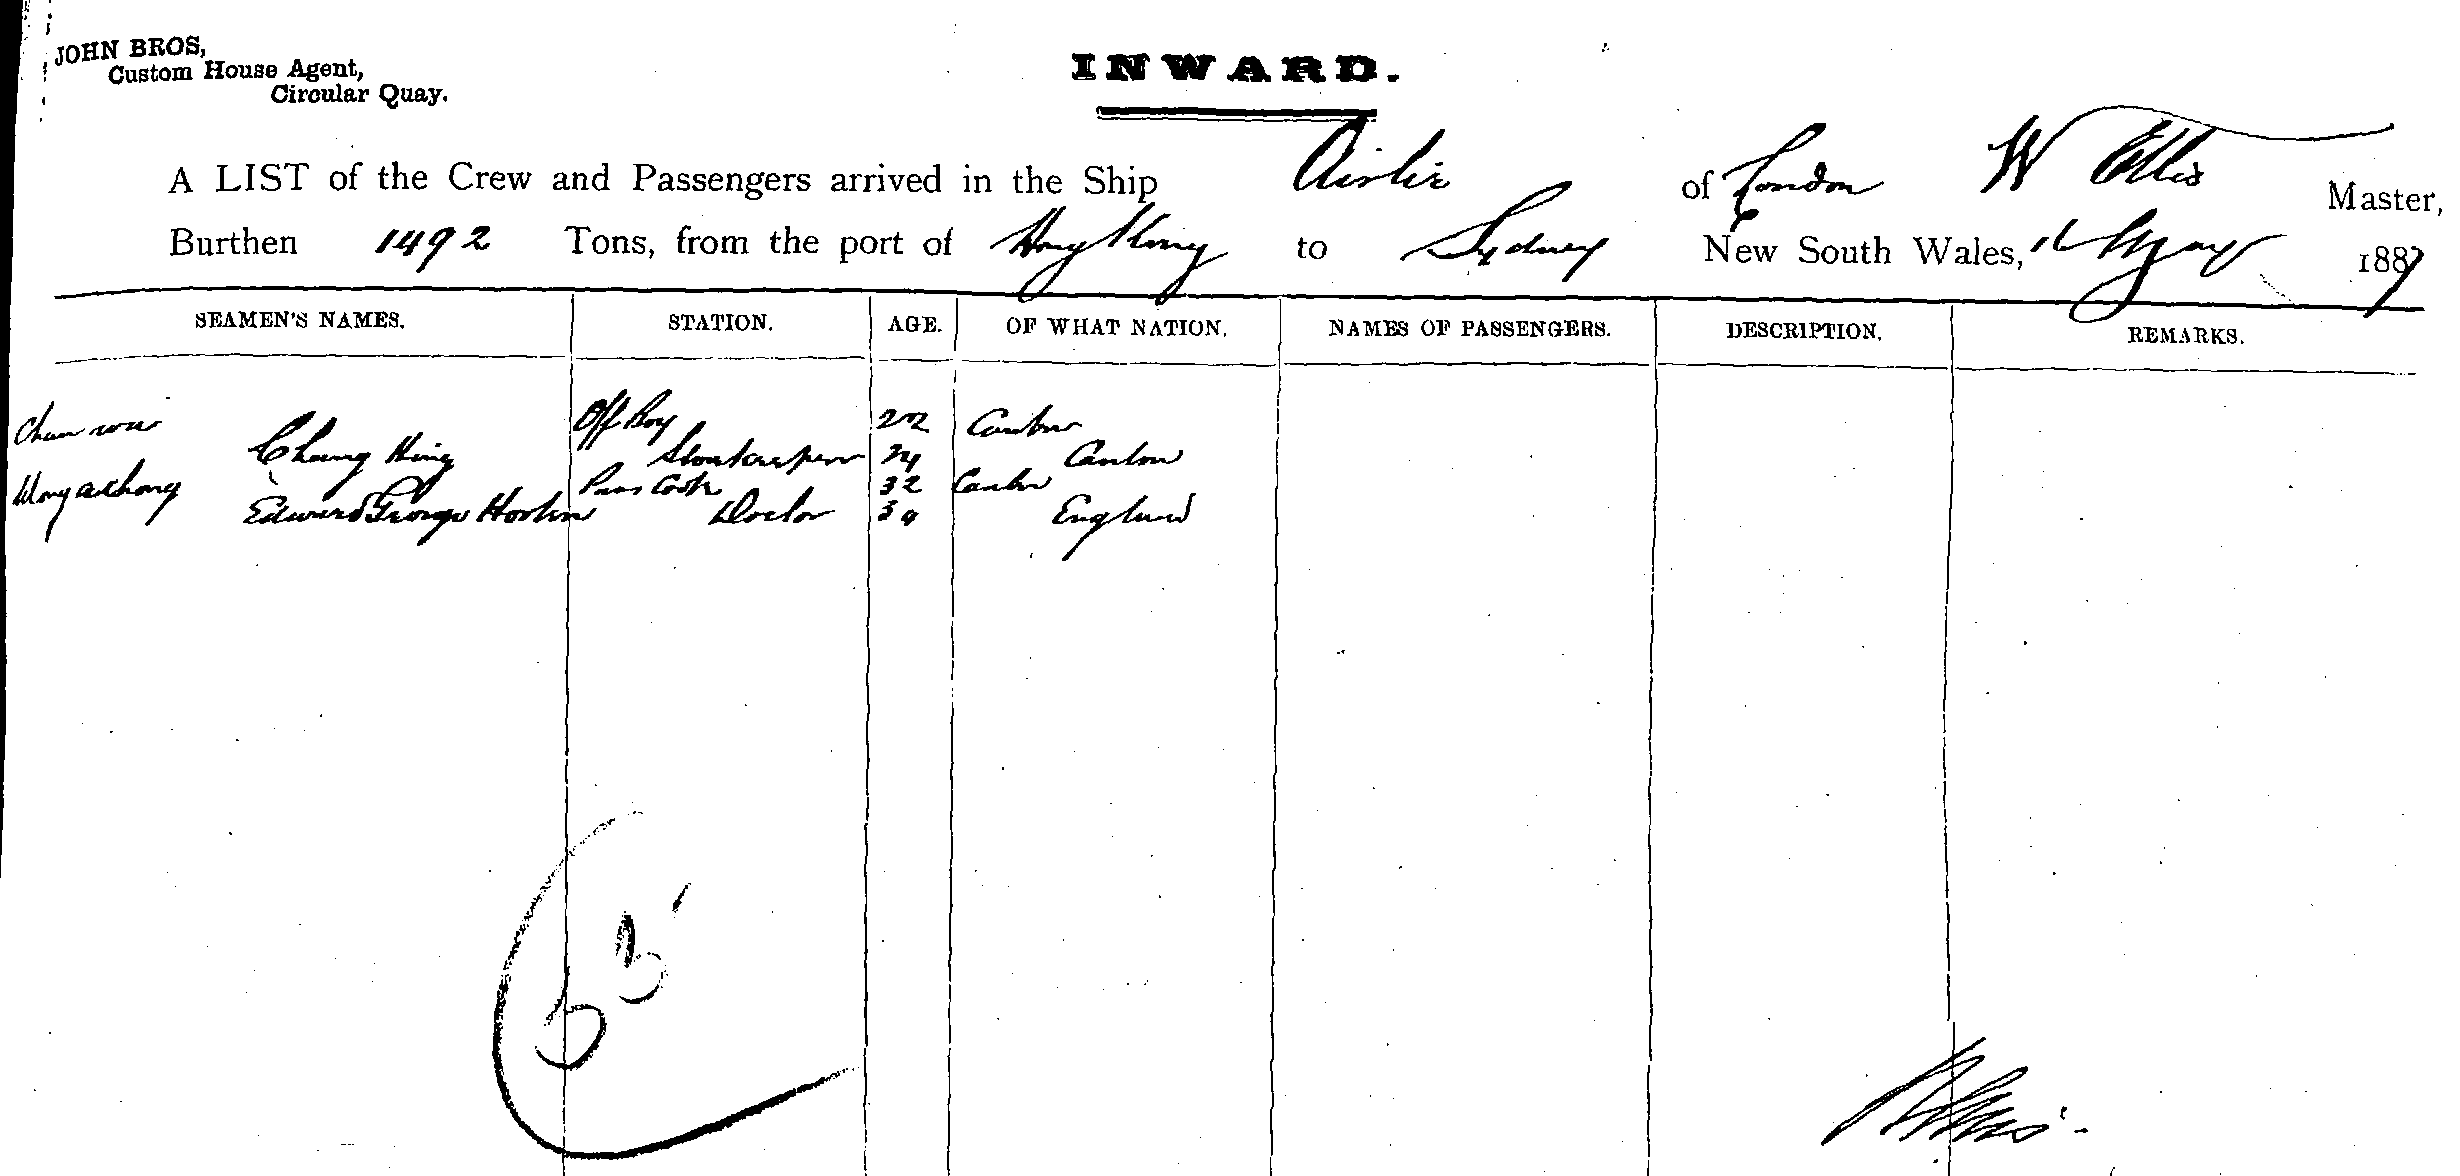 JOHN BROS,
Custom House Agent,
Circular Quay.
INWARD.
A LIST of the Crew and Passengers arrived in the Ship Airlie of London W Ellis Master,
Burthen 1492 Tons, from the port of Hong Kong to Sydney New South Wales, 16 May 1887
SEAMEN'S NAMES. STATION. AGE. OF WHAT NATION. NAMES OF PASSENGERS. DESCRIPTION. REMARKS.
Off Boy 22 Canton
Chang Hing Storekeeper 24 Canton
Wong Pass Cook 32 Canton
Edward George Doctor England
53